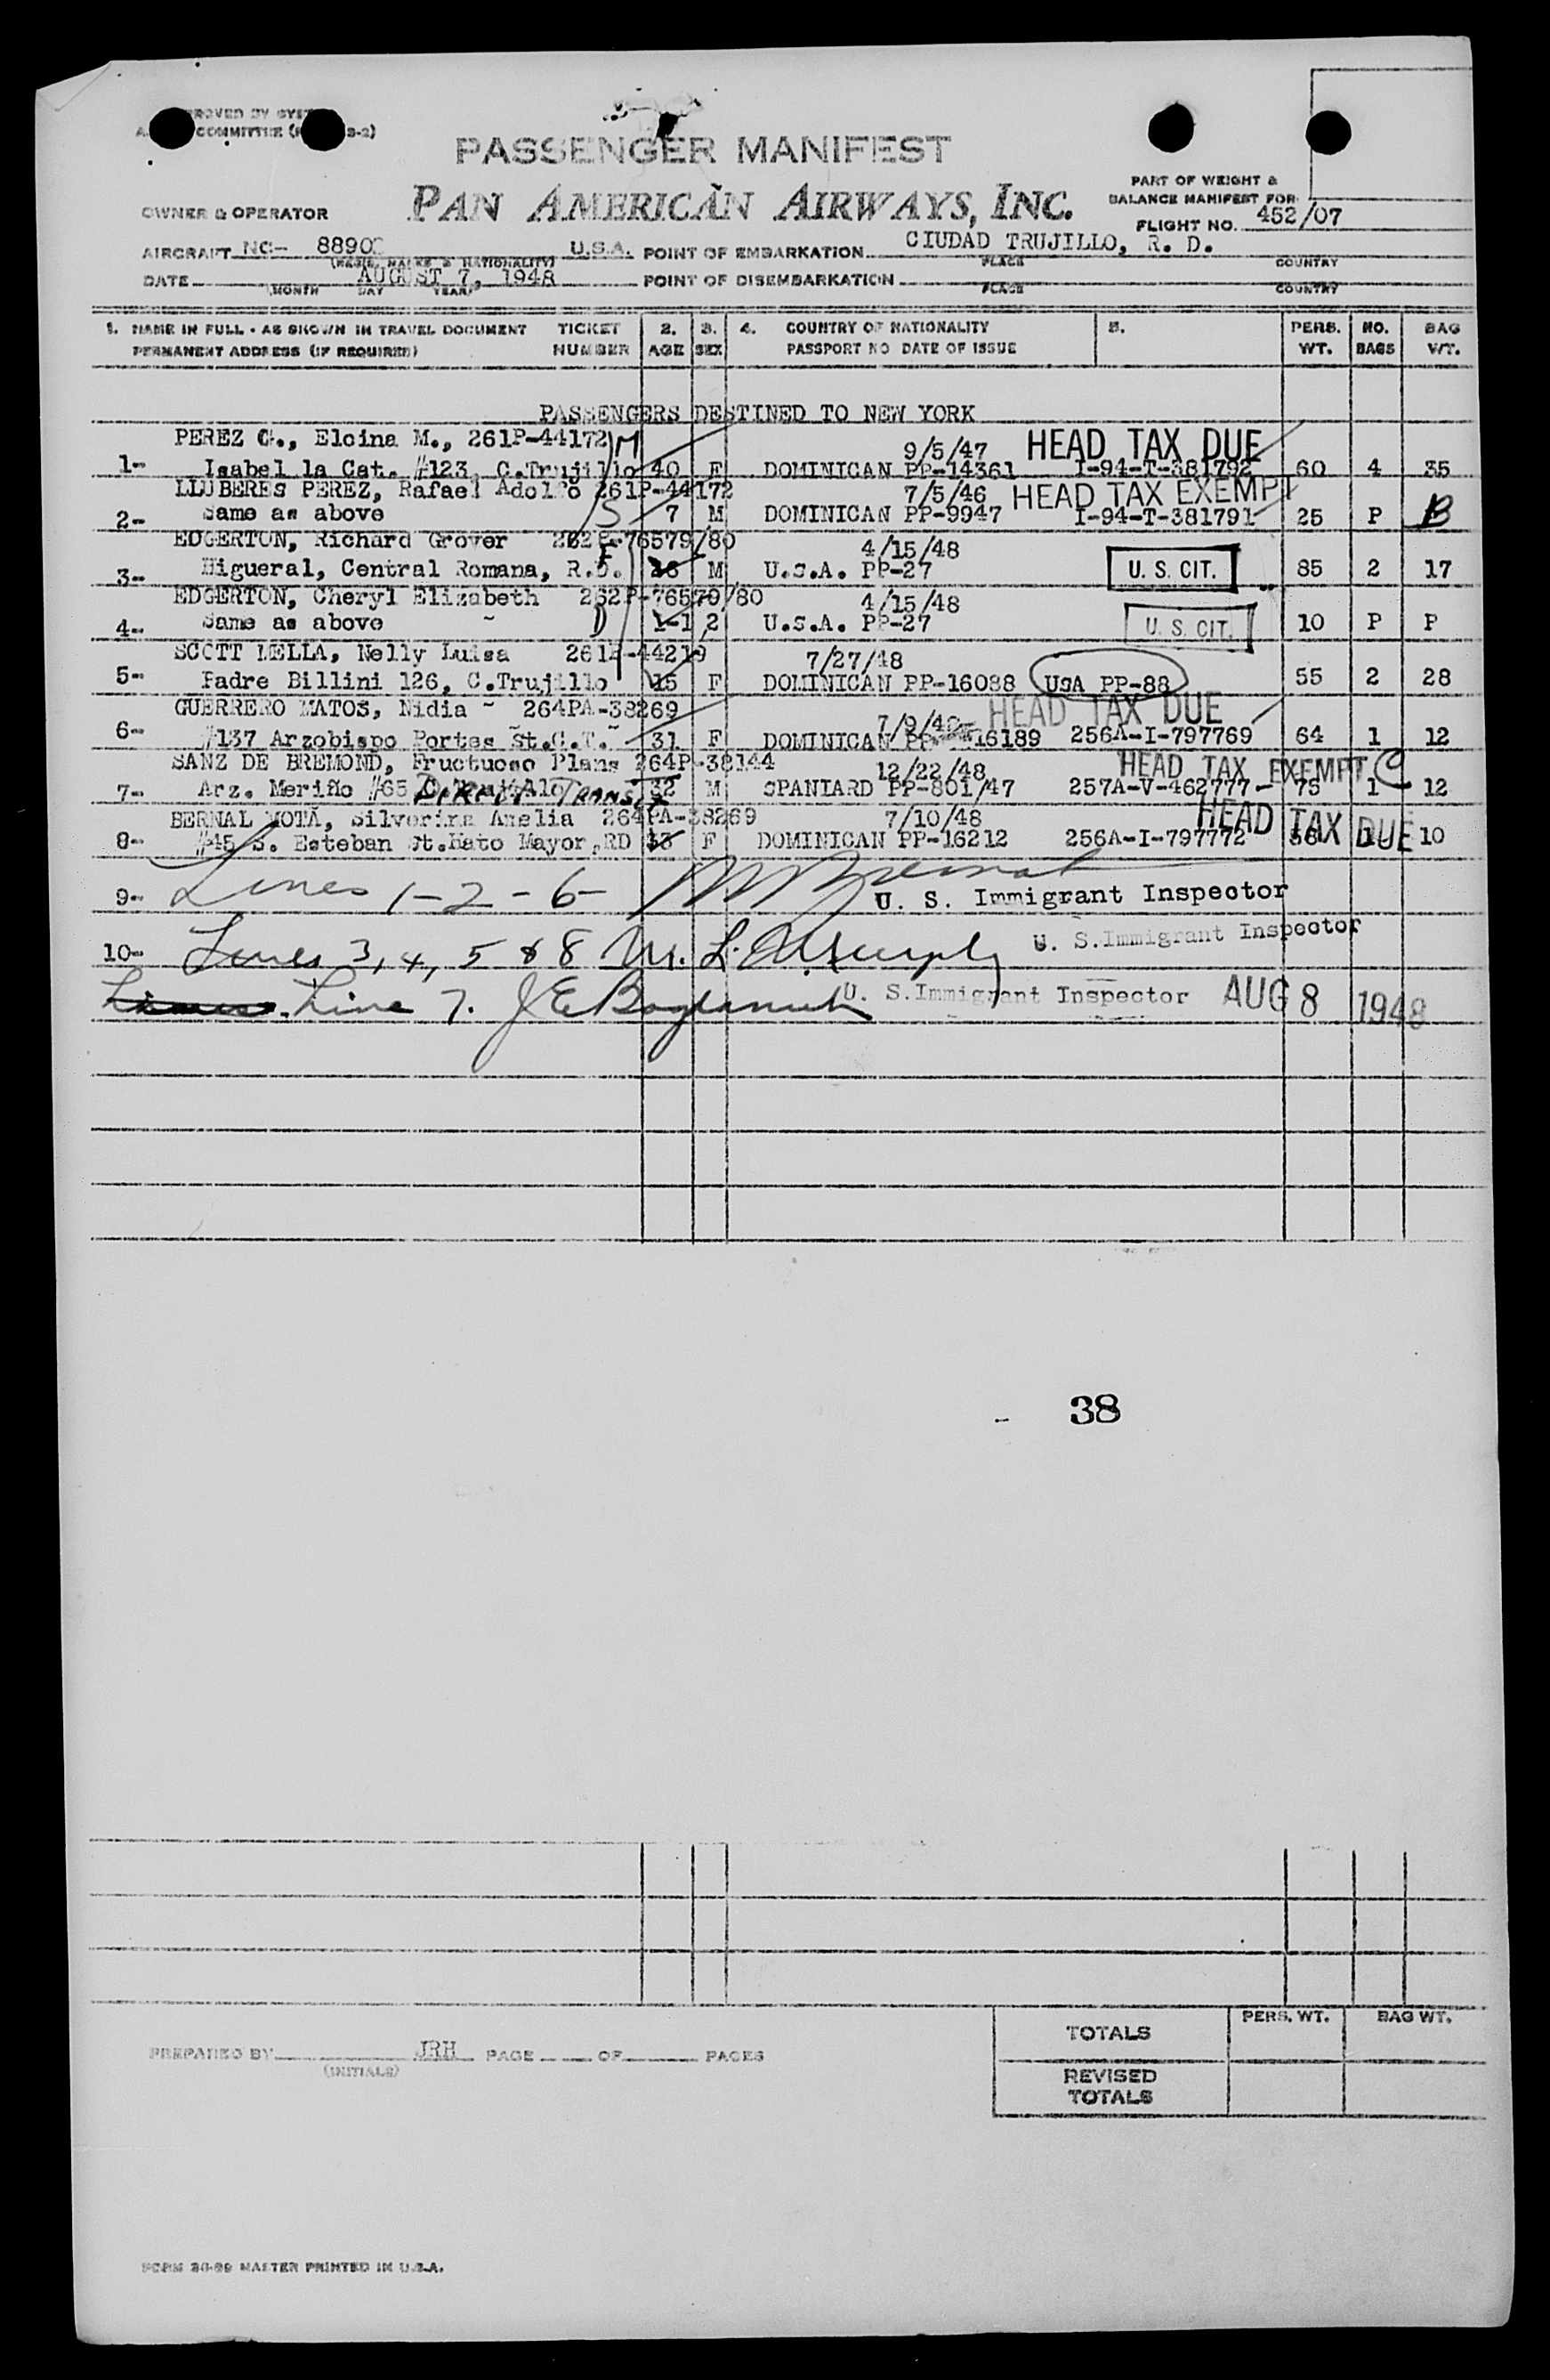 PROVED BY SYST
COMMITTEE (
S-2)
PASSENGER MANIFEST
PAN AMERICAN AIRWAYS, INC.
PART OF WEIGHT &
BALANCE MANIFEST FOR
FLIGHT NO. 452/07
OWNER & OPERATOR
AIRCRAFT NC- 8890 U.S.A. POINT OF EMBARKATION CIUDAD TRUJILLO, R. D.
(MAKE, MARKS & NATIONALITY) PLACE COUNTRY
DATE AUGUST 7, 1948 POINT OF DISEMBARKATION
MONTH DAY YEAR PLACE COUNTRY
1. NAME IN FULL - AS SHOWN IN TRAVEL DOCUMENT TICKET 2. 3. 4. COUNTRY OF NATIONALITY 5. PERS. NO. BAG
PERMANENT ADDRESS (IF REQUIRED) NUMBER AGE SEX PASSPORT NO DATE OF ISSUE WT. BAGS WT.
PASSENGERS DESTINED TO NEW YORK
PEREZ G., Elcina M., 261P-44172 M 9/5/47 HEAD TAX DUE
1- Isabel la Cat. #123, C.Trujillo 40 F DOMINICAN PP-14361 I-94-T-381792 60 4 35
LLUBERES PEREZ, Rafael Adolfo 261P-44172 7/5/46 HEAD TAX EXEMPT
2- Same as above S 7 M DOMINICAN PP-9947 I-94-T-381791 25 P B
EDGERTON, Richard Grover 262P-76579/80 4/15/48
3- Higueral, Central Romana, R.D. F 26 M U.S.A. PP-27 U. S. CIT. 85 2 17
EDGERTON, Cheryl Elizabeth 262P-76579/80 4/15/48
4- Same as above D 1-1 2 U.S.A. PP-27 U. S. CIT. 10 P P
SCOTT MELLA, Nelly Luisa 261P-44219 7/27/48
5- Padre Billini 126, C.Trujillo 15 F DOMINICAN PP-16088 USA PP-88 55 2 28
GUERRERO MATOS, Nidia 264PA-38269 7/9/48 HEAD TAX DUE
6- #137 Arzobispo Portes St.C.T. 31 F DOMINICAN PP 16189 256A-I-797769 64 1 12
SANZ DE BREMOND, Fructuoso Plans 264P-38144 12/22/48 HEAD TAX EXEMPT C
7- Arz. Meriño #65 C.Trujillo DIRECT TRANSIT 32 M SPANIARD PP-801/47 257A-V-462777- 75 1 12
BERNAL MOTA, Silverina Amelia 264PA-38269 7/10/48 HEAD TAX DUE
8- #45 S. Esteban St.Hato Mayor,RD 13 F DOMINICAN PP-16212 256A-I-797772 56 1 10
9- Lines 1-2-6- U. S. Immigrant Inspector
10- Lines 3, 4, 5 & 8 M. L. Murphy U. S.Immigrant Inspector
Line 7. U. S.Immigrant Inspector AUG 8 1948
- 38
TOTALS PERS. WT. BAG WT.
PREPARED BY JRH PAGE OF PAGES
(INITIALS)
REVISED
TOTALS
FORM 30-99 MASTER PRINTED IN U.S.A.